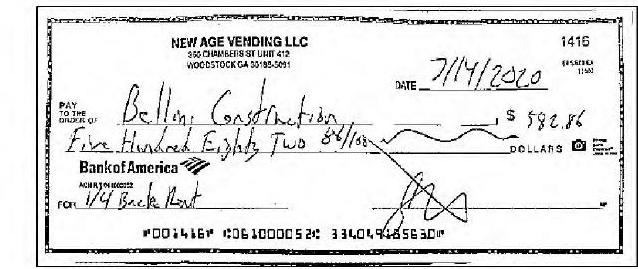 NEW AGE VENDING LLC
1416
360 CHAMBERS ST UNIT 412
WOODSTOCK GA 30188-5091
DATE 7/14/2020
PAY TO THE ORDER OF Bellini Construction $ 582.86
Five Hundred Eighty Two 86/100 DOLLARS
Bank of America
FOR 1/4 Back Rent
⑈001416⑈ ⑆061000052⑆ 334049185630⑈